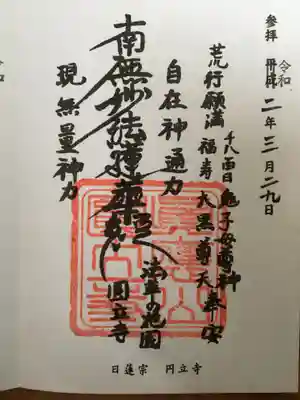 参拝 令和 二年三月二九日
荒行願満 鬼子母尊神
福寿大黒尊天奉安
自在神通力
南無妙法蓮華経
現無量神力
圓立寺
日蓮宗 円立寺